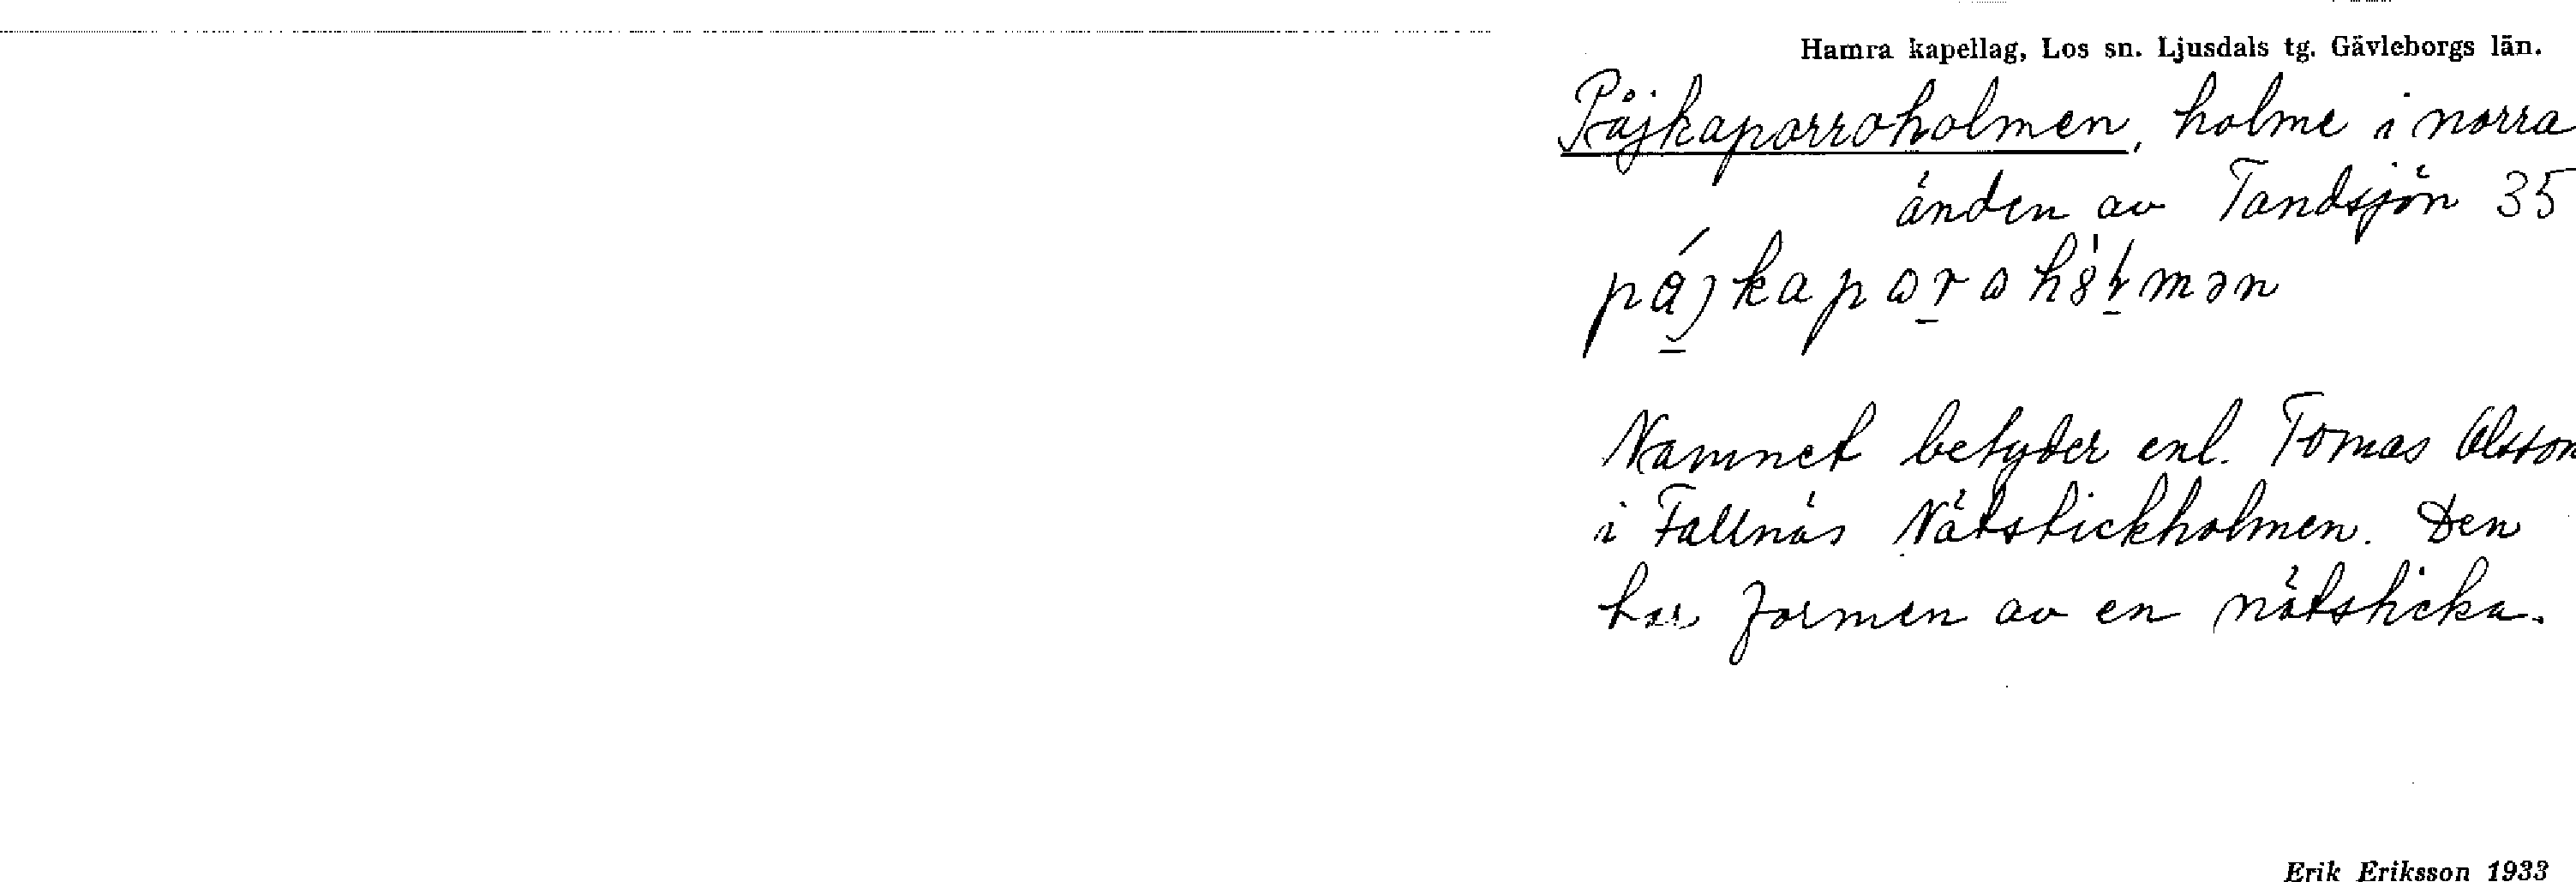 Hamra kapellag, Los sn. Ljusdals tg. Gävleborgs län.
Påjkaporroholmen, holme i norra
änden av Tandsjön 35
Namnet betyder enl. Tomas Olsson
i Fallnäs Nätstickholmen. Den
har formen av en nätsticka.
Erik Eriksson 1933